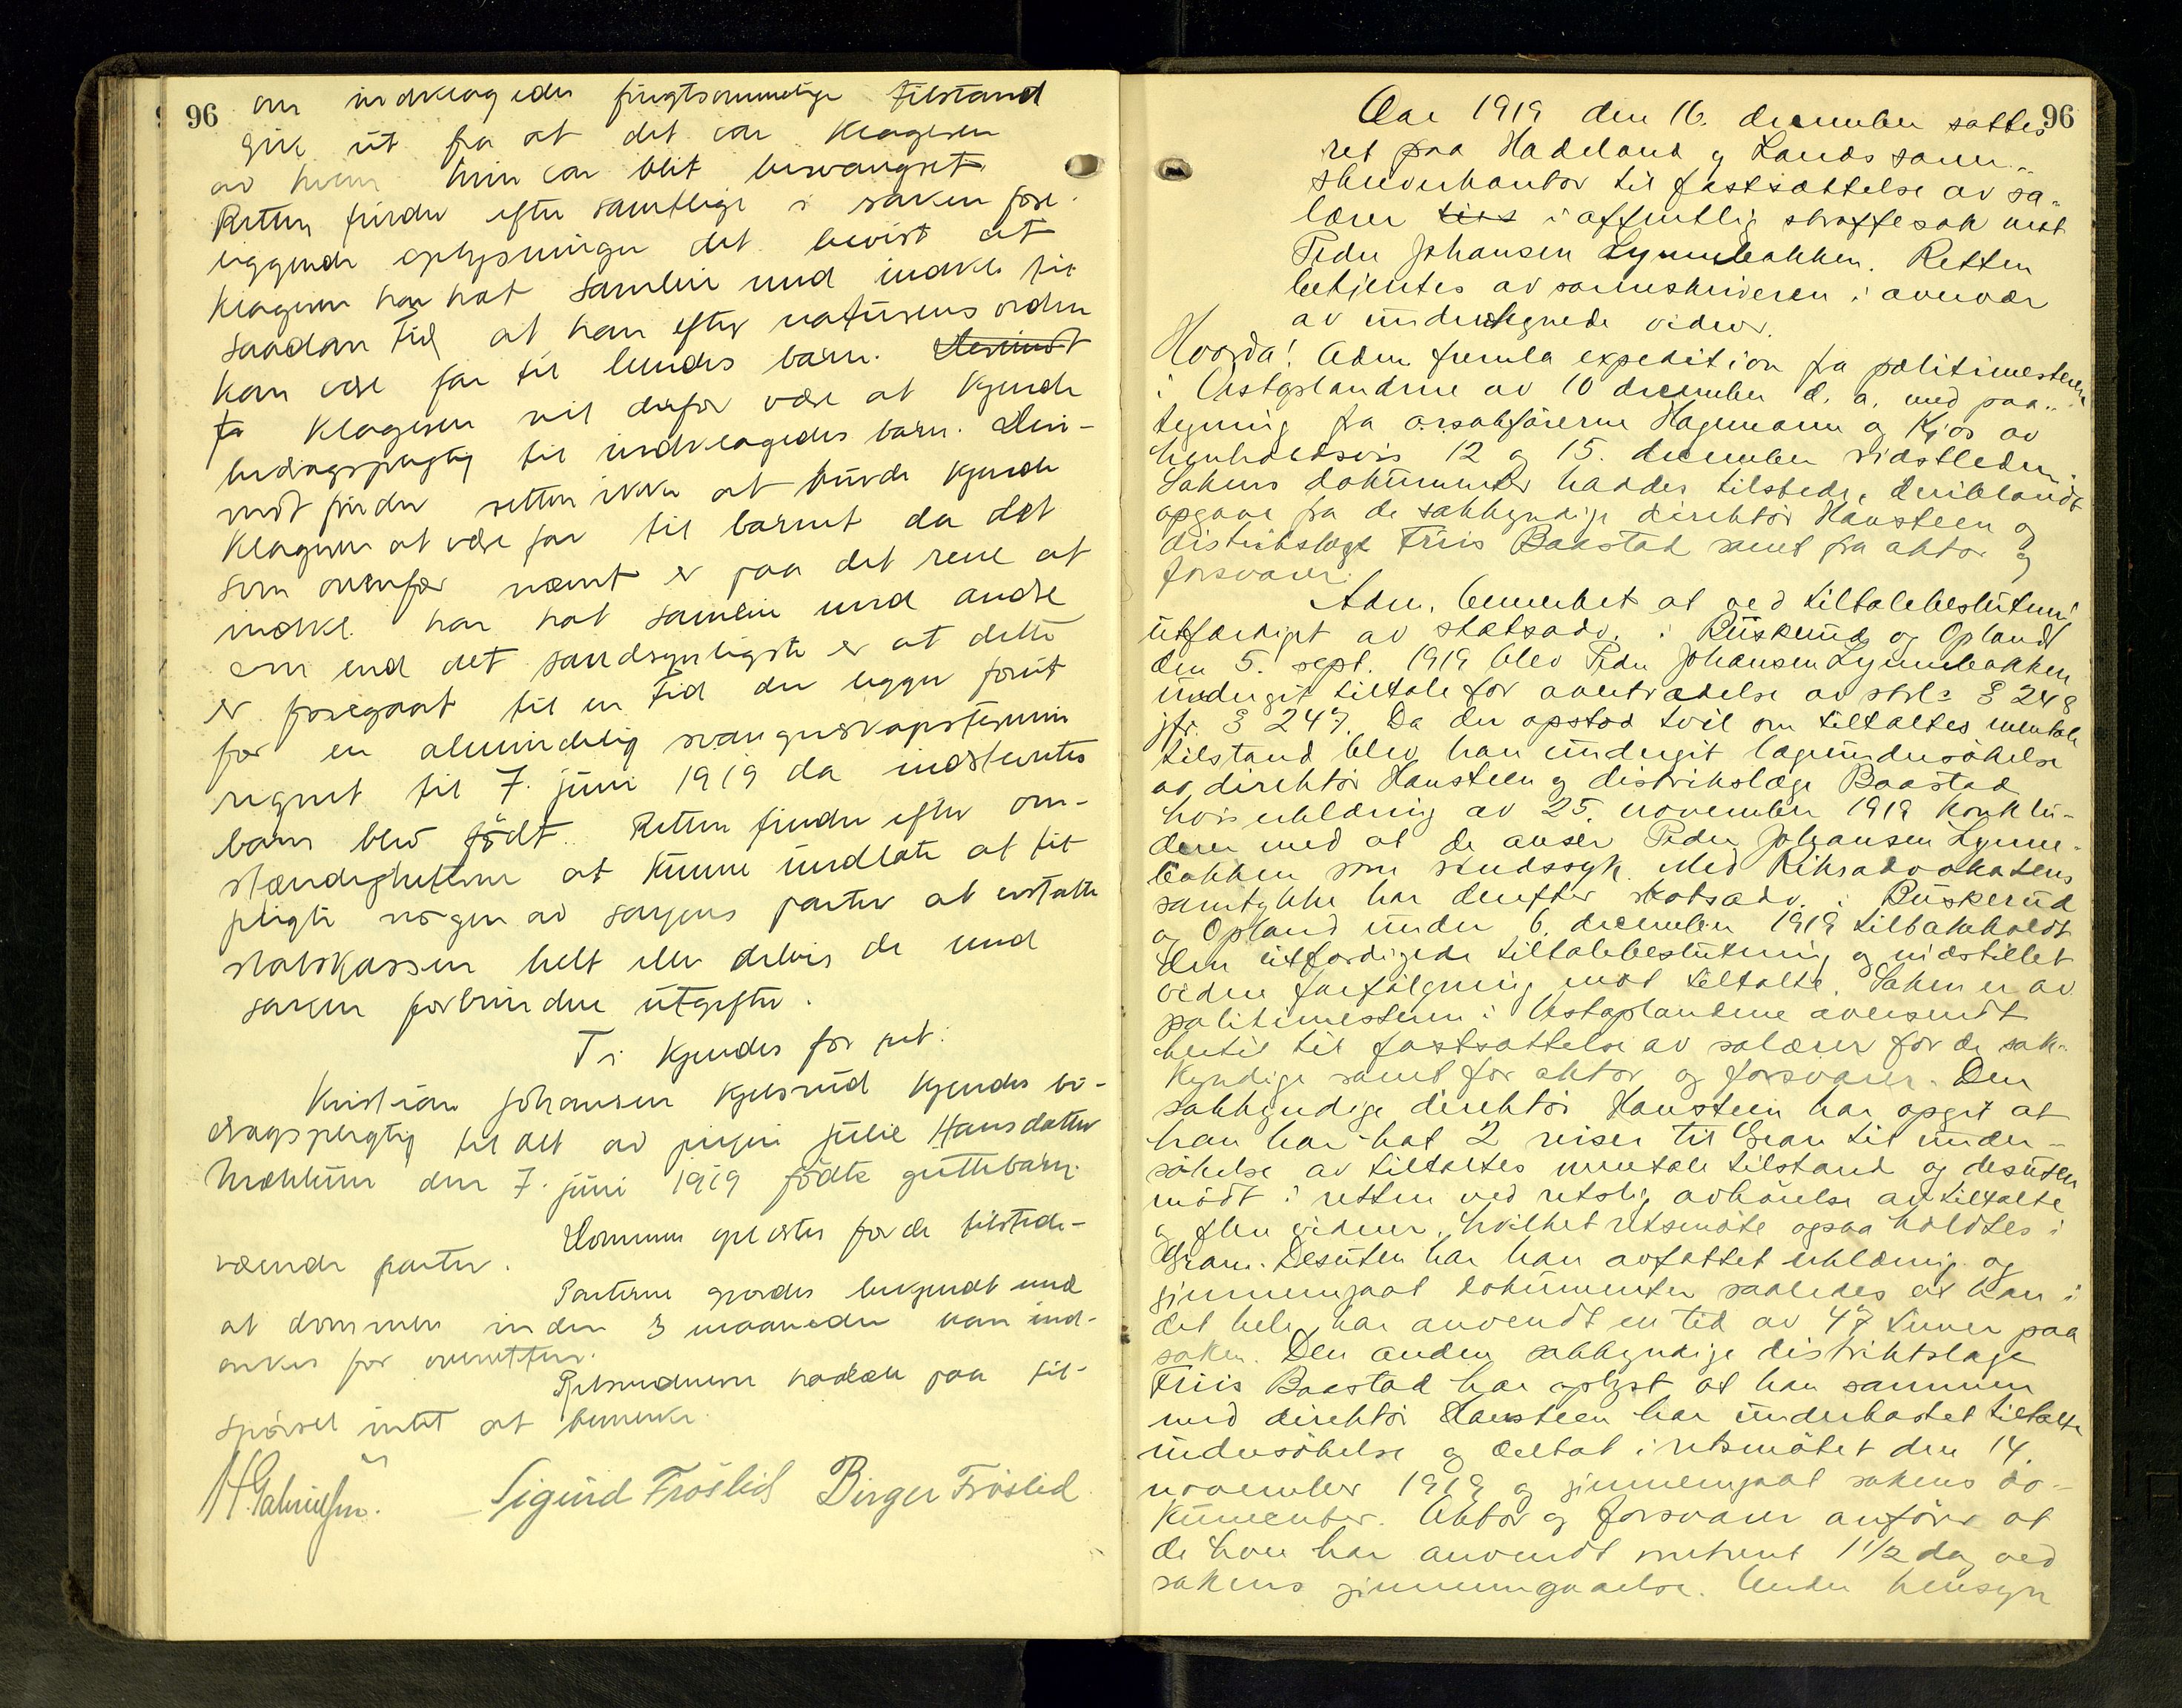 96
om indklagedes frugtsommelige tilstand
gik ut fra at det var klageren
av hvem hun var blit besvangret.
Retten finder efter samtlige i saken fore-
liggende oplysninger det bevist at
klageren har hat samleie med indkl. til
saadan tid at han efter naturens orden
kan være far til hendes barn. Derimot
fr Klageren vil derfor være at kjende
bidragspligtig til indklagedes barn. Deri-
mot finder retten ikke at burde kjende
klageren at være far til barnet da det
som ovenfor nævnt er paa det rene at
indkl. har hat samleie med andre
om end det sandsynligste er at dette
er foregaat til en tid der ligger forut
for en almindelig svangerskapstermin
regnet til 7. juni 1919 da indstevntes
barn blev født. Retten finder efter om-
stændighetene at kunne undlate at til-
pligte nogen av sakens parter at erstatte
statskassen helt eller delvis de med
saken forbundne utgifter.
Ti kjendes for ret:
Kristian Johansen Kjelsrud kjendes bi-
dragspligtig til det av piken Julie Hansdatter
Mæhlum den 7. juni 1919 fødte guttebarn.
Dommen oplæstes for de tilstede-
værende parter.
Parterne gjordes bekjendt med
at dommen inden 3 maaneder kan ind-
ankes for overretten.
Retsvidnerne hadde paa til-
spørsel intet at bemerke.
H. Gabrielsen. Sigurd Frøslid Birger Frøslid
96
Aar 1919 den 16. december sattes
ret paa Hadeland og Lands soren-
skriverkontor til fastsættelse av sa-
lærer i offentlig straffesak mot
Peder Johansen Lynnebakken. Retten
betjentes av sorenskriveren i overvær
av undertegnede vidner.
Hvorda! Adm. fremla expedition fra politimesteren
i Vestoplandene av 10 december d. a. med paa-
tegning fra o.r.sakførerne Hagemann og Kjos av
henholdsvis 12 og 15. december sidstleden.
Sakens dokumenter haddes tilstede, deriblandt
opgave fra de sakkyndige direktør Hansteen og
distriktslæge Friis Baastad samt fra aktor og
forsvarer.
Adm. bemerket at ved tiltalebeslutning
utfærdiget av statsadv. i Buskerud og Opland
den 5. sept. 1919 blev Peder Johansen Lynnebakken
undergit tiltale for overtrædelse av strl.s § 248
jfr. § 247. Da der opstod tvil om tiltaltes mentale
tilstand blev han undergit lægeundersøkelse
av direktør Hansteen og distriktslæge Baastad
hvis erklæring av 25. november 1919 konklu-
derer med at de anser Peder Johansen Lynne-
bakken som sindssyk. Med Riksadvokatens
samtykke har derefter statsadv. i Buskerud
og Opland under 6. december 1919 tilbakekaldt
den utfærdigede tiltalebeslutning og indstillet
videre forfølgning mot tiltalte. Saken er av
politimesteren i Vestoplandene oversendt
hertil til fastsættelse av salærer for de sak-
kyndige samt for aktor og forsvarer. Den
sakkyndige direktør Hansteen har opgit at
han har hat 2 reiser til Gran til under-
søkelse av tiltaltes mentale tilstand og desuten
mødt i retten ved retslig avhørelse av tiltalte
og flere vidner, hvilket retsmøte ogsaa holdtes i
Gran. Desuten har han avfattet erklæring og
gjennemgaat dokumenter saaledes at han i
det hele har anvendt en tid av 47 timer paa
saken. Den anden sakkyndige distriktslæge
Friis Baastad har oplyst at han sammen
med direktør Hansteen har underkastet tiltalte
undersøkelse og deltat i retsmøtet den 14.
november 1919 og gjennemgaat sakens do-
kumenter. Aktor og forsvarer anfører at
de hver har anvendt omtrent 1 1/2 dag ved
sakens gjennemgaaelse. Under hensyn